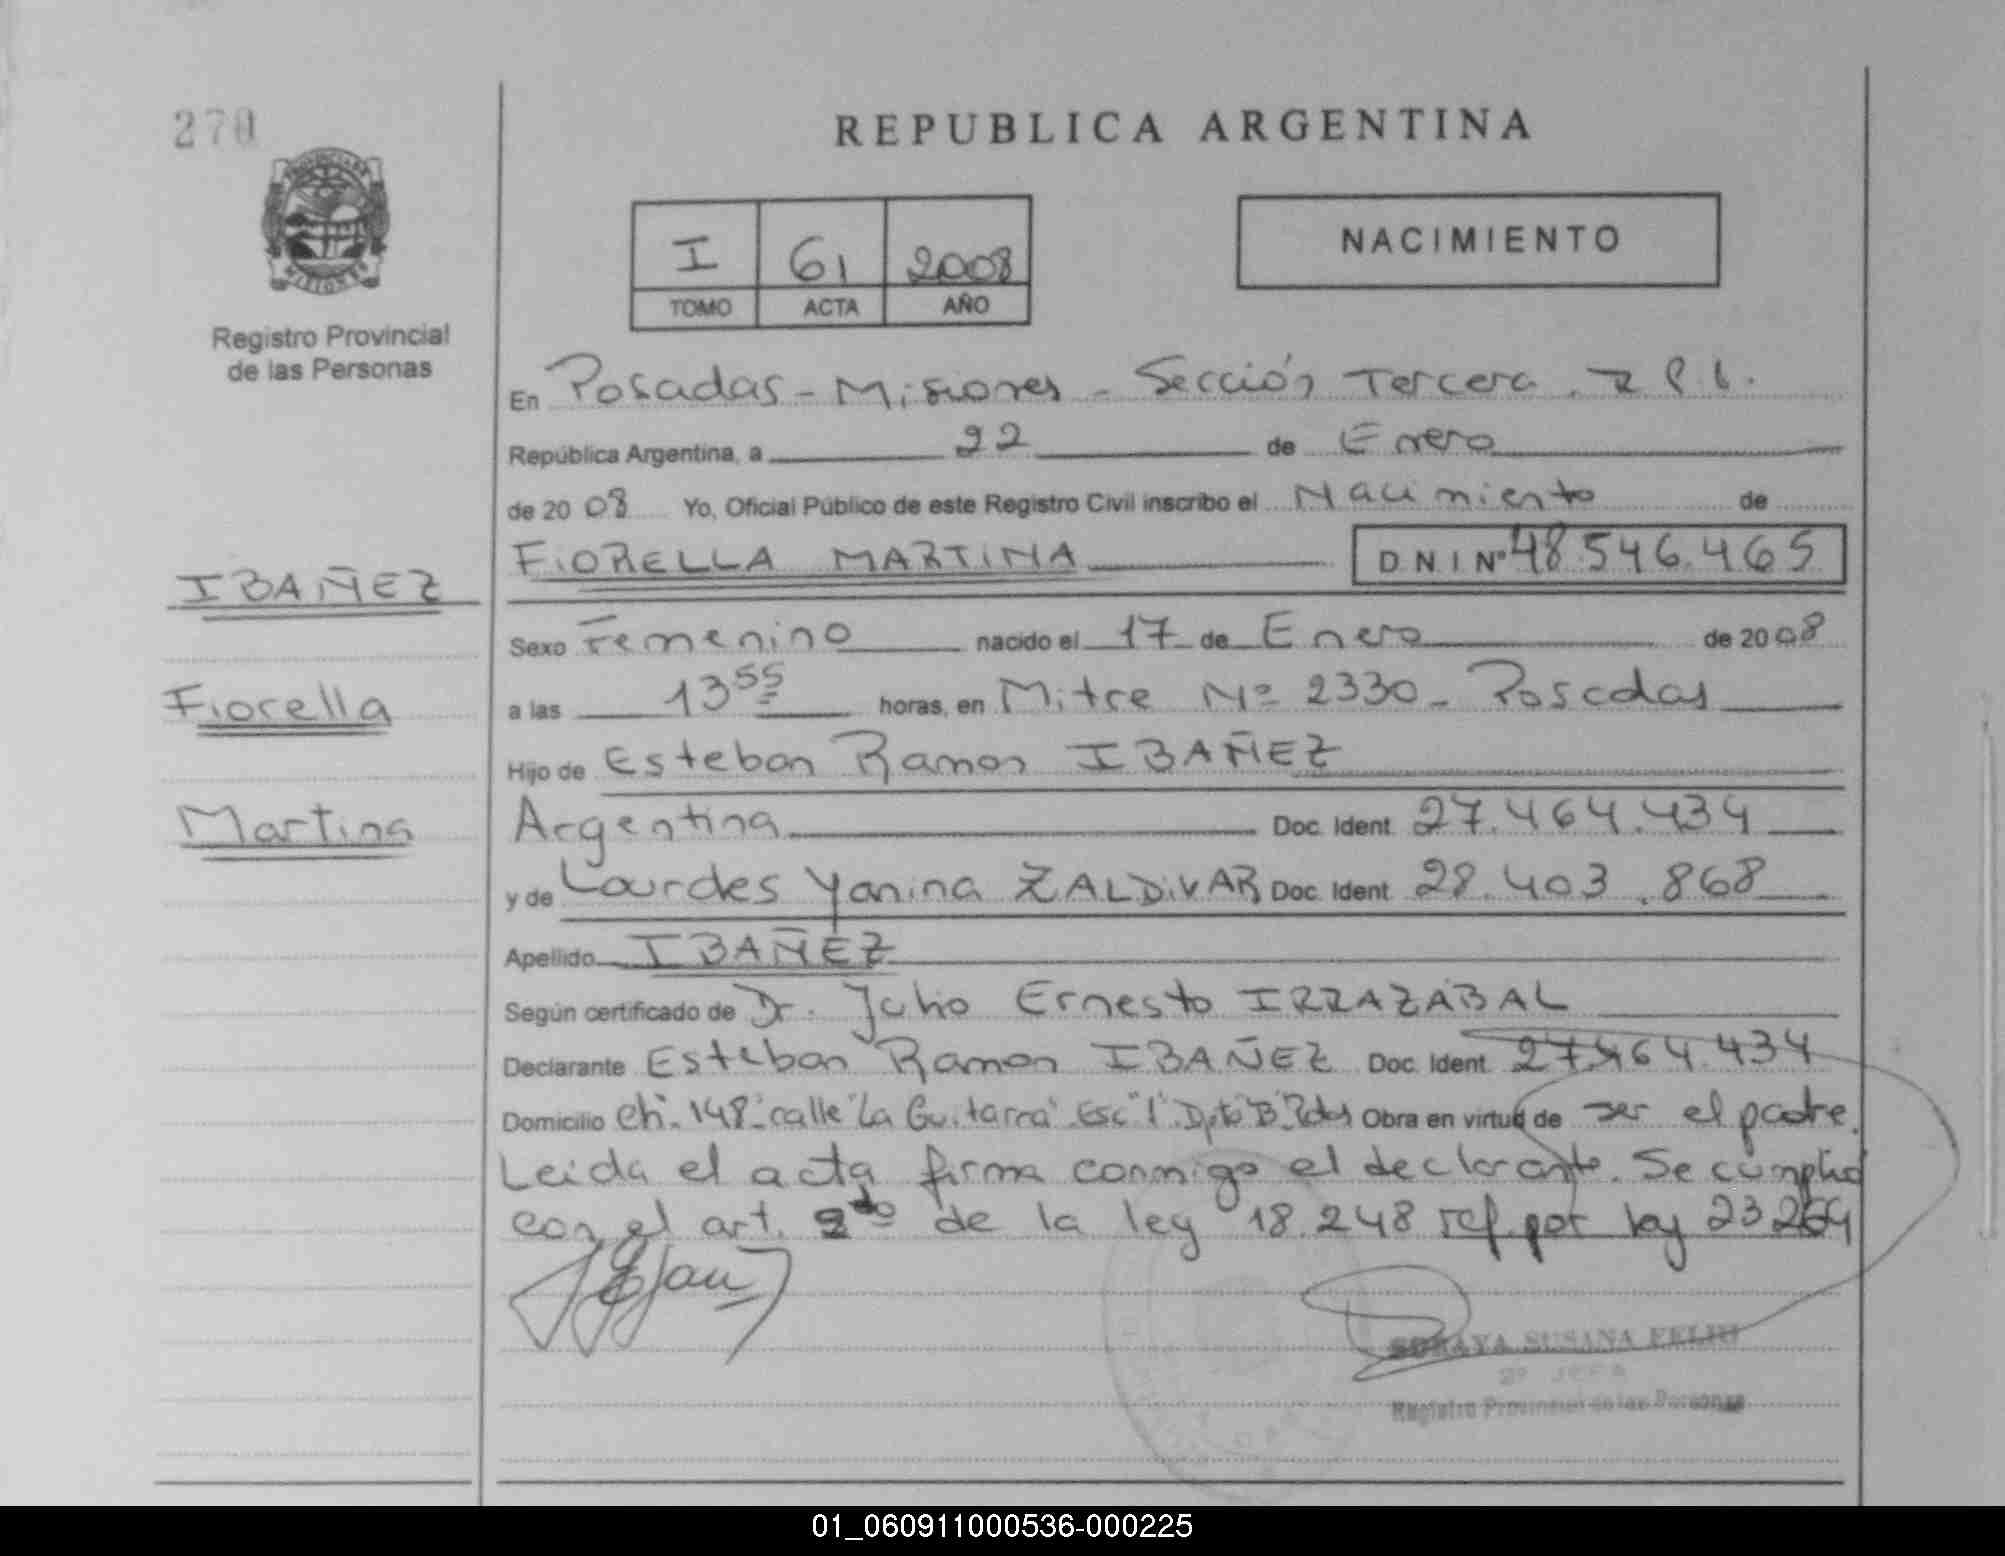 270
PROVINCIA DE MISIONES
Registro Provincial
de las Personas
REPUBLICA ARGENTINA
I 61 2008
TOMO ACTA AÑO
NACIMIENTO
En Posadas - Misiones - Sección Tercera.
República Argentina, a 22 de Enero
de 2008 Yo, Oficial Público de este Registro Civil inscribo el Nacimiento de
FIORELLA MARTINA D N I Nº 48.546.465
IBAÑEZ
Fiorella
Martina
Sexo Femenino nacido el 17 de Enero de 2008
a las 13 55 horas, en Mitre Nº 2330 - Posadas
Hijo de Esteban Ramon IBAÑEZ
Argentina Doc. Ident. 27.464.434
y de Lourdes Yanina ZALDIVAR Doc. Ident. 28.403.868
Apellido IBAÑEZ
Según certificado de Dr. Julio Ernesto IRRAZABAL
Declarante Esteban Ramon IBAÑEZ Doc. Ident. 27.464.434
Domicilio Ch. 148 - calle "La Guitarra" Esc "1" Dpto "B" Pdas Obra en virtud de ser el padre.
Leida el acta firma conmigo el declarante. Se cumplió
con el art. 2do de la ley 18.248 ref. por ley 23264
SORAYA SUSANA FELIU
2º JEFA
Registro Provincial de las Personas
01_060911000536-000225